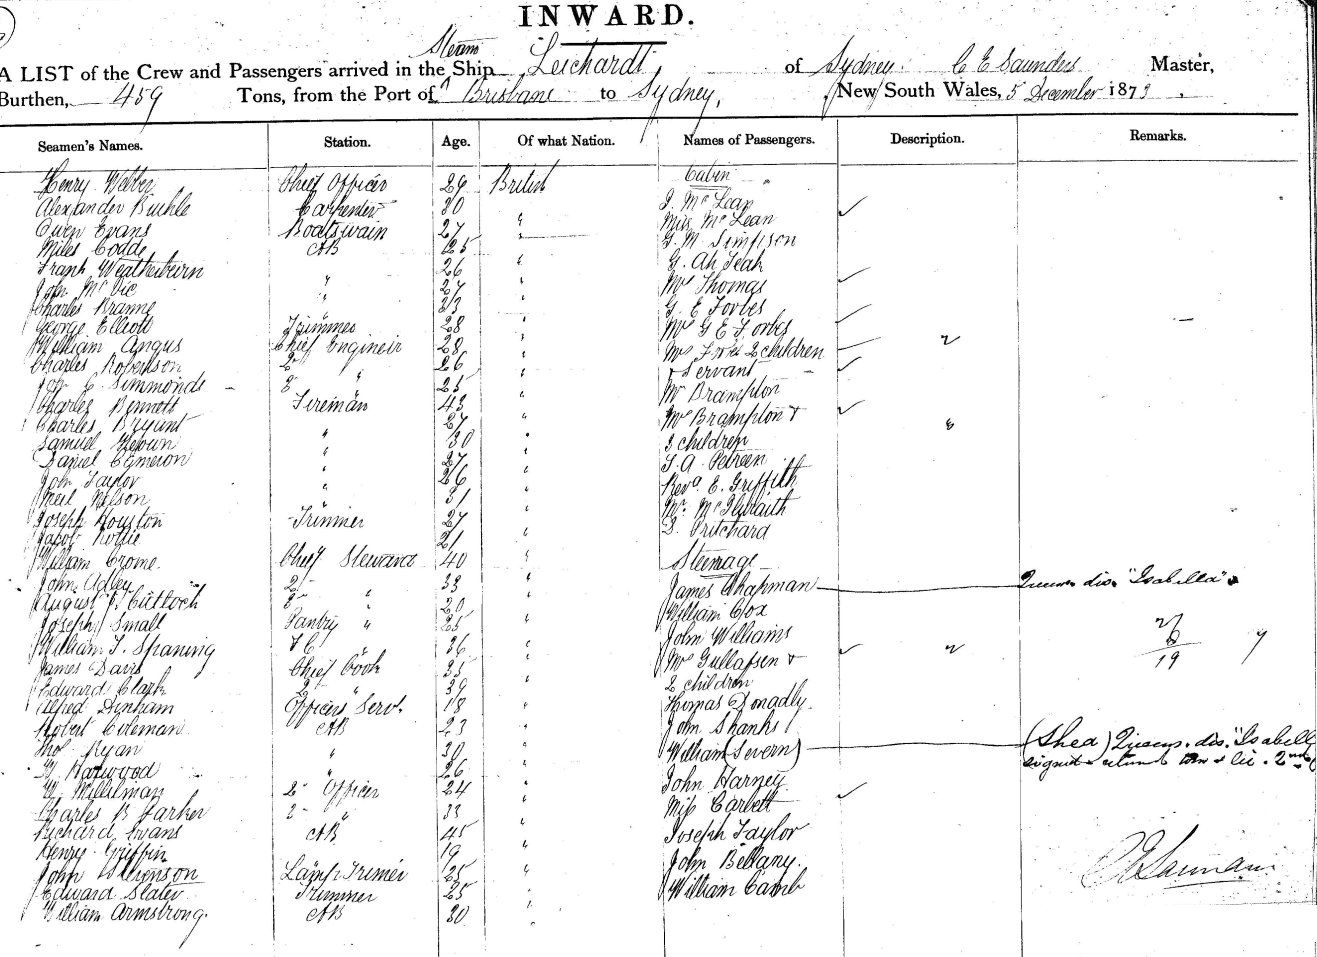 INWARD.
Steam
A LIST of the Crew and Passengers arrived in the Ship Leichardt of Sydney. C E Saunders Master,
Burthen, 459 Tons, from the Port of Brisbane to Sydney, New South Wales, 5 December 1873.
Seamen's Names. Station. Age. Of what Nation. Names of Passengers. Description. Remarks.
Henry Webber Chief Officer 26 British Cabin "
Alexander Carpenter 30 " J. McLean
Owen Evans Boatswain 27 " Miss McLean
Miles Codde AB 25 G. M. Simpson
Frank 26 " G. Ah
John McVie " 27 " Mrs Thomas
Charles " 23 " G. E. Forbes
George Elliott Trimmer 28 " Mrs G E Forbes
William Angus Chief Engineer 28 " Mrs 2 children
Charles Robertson 2nd 26 " + Servant
Simmonds 3 " 25 " Mr Brampton
Charles Bennett Fireman 43 " Mrs Brampton +
Charles Bryant " 27 " 3 children
Samuel " 30 "
Daniel Cameron " 27 " Revd. E. Griffith
John Taylor " 26 " Mr. McIlwraith
Neil Nelson " 31 " Pritchard
Joseph Houston Trimmer 27 "
Jacob 21 "
William Crome Chief Steward 40 " Steerage
John Adley 2 " 33 " James Chapman dis. "Isabella"
August 3 " 20 " William Cox
Joseph Small Pantry " 25 " John Williams
William T. Spaning F C " 26 " Mrs Gullafsen +
James Davis Chief Cook 35 " 2 children 19
Edward Clark 2 " 39 " Thomas Donadly
Alfred Denham Officers Serv. 18 " John Shanks
Robert Coleman AB 23 " William (Severn) (Shea) dis. "Isabella
Thos Ryan " 30 " John Harney
Harwood " 26 " Miss Corbett
W. Milliman 2nd Officer 24 " Joseph Taylor
Charles B Parker 2 " 33 " John Bellany.
Richard Evans AB 45 " William Camb
Henry Griffin 19 "
John Lamp Trimer 25 "
Edward Slater Trimmer 25 "
William Armstrong. AB 30 "